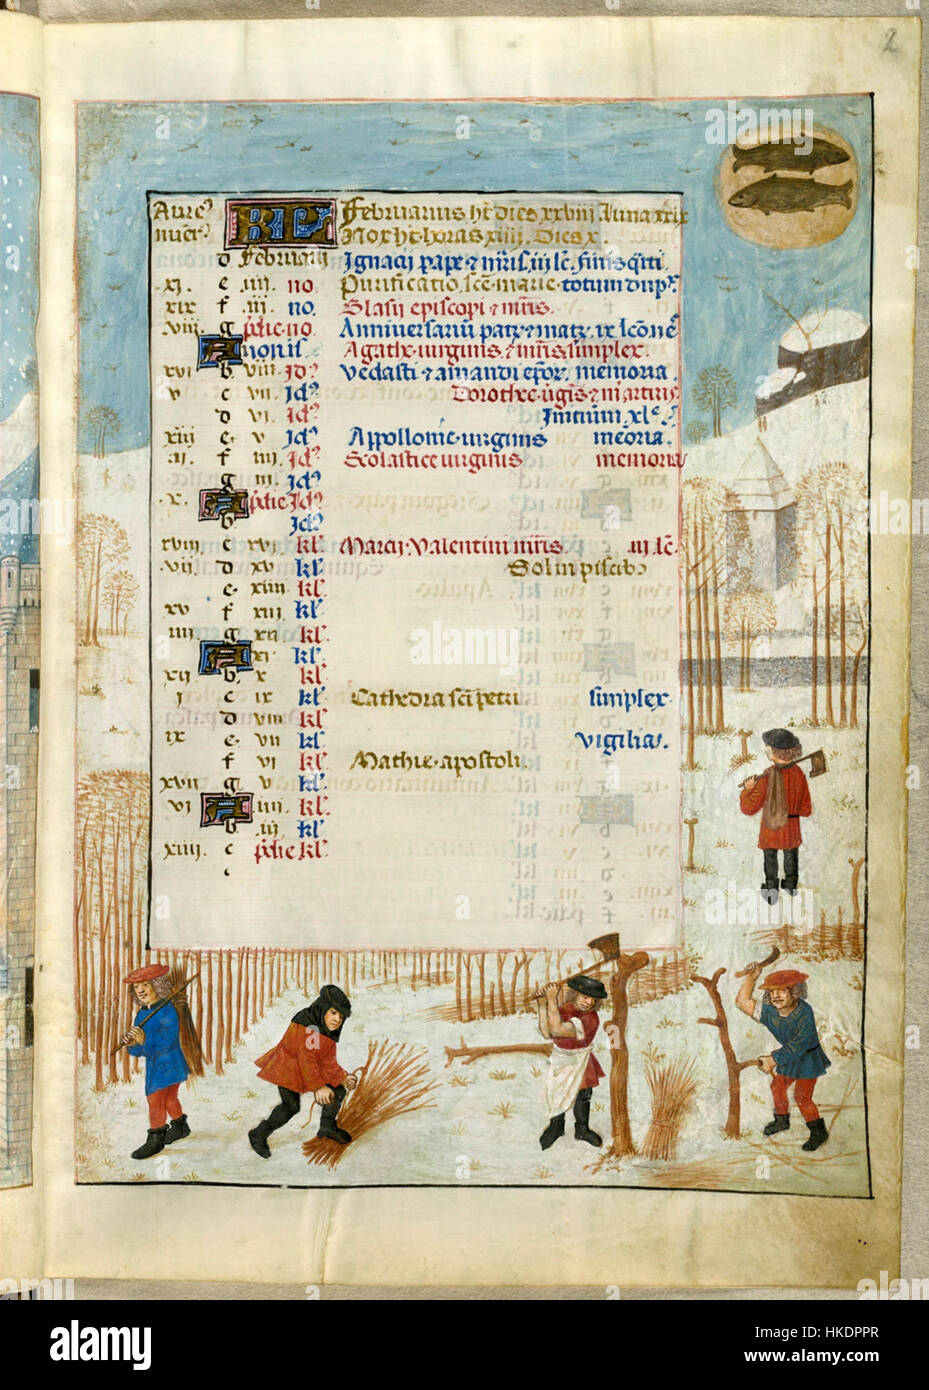 2
Aure⁹ KL Februarius ht dies xxviii luna xxix
nuer⁹ Nox ht horas xiiii. Dies x.
d Februarii Ignacii pape & mris. iii lc.
xi. e .iiii. no. Purificatio sce marie. totum dup.
xix f .iii. no. Blasii episcopi & mris.
viii. g pdie. no. Anniversariu patz & matz. ix lco.
A nonis Agathe. virginis. & mris. simplex.
xvi b viii. Id⁹ Vedasti & amandi epor. memoria
v c vii. Id⁹ Dorothee. & martiris
d vi. Id⁹ Initium xl⁹.
xiii e. v. Id⁹ Appollonie. virginis memoria.
ii. f iiii. Id⁹ Scolastice virginis memoria
g iii. Id⁹
x. A pdie Id⁹
b. Id⁹
xviii c xvi. kl. Marcii. Valentini mris iii lc.
vii. d xv kl. Sol in piscibo
e. xiiii kl.
xv f xiii. kl.
iiii g xii kl.
A xi. kl.
xii b. x kl.
i c ix kl. Cathedra sci petri. simplex.
d viii kl.
ix e. vii kl. vigilia.
f vi kl. Mathie. apostoli.
xvii g. v. kl.
vi A iiii kl.
b .iii. kl.
xiiii. c pdie kl.
c
alamy
Image ID: HKDPPR
www.alamy.com